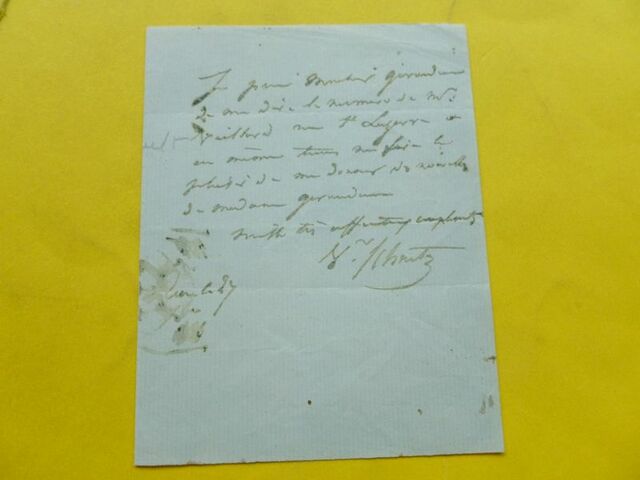 Je prie Monsieur girardin
de me dire le numero de Mr
rue St Lazarre &
en même tems me faire le
plaisir de me donner des nouvelles
de madame girardin
mille très affectueux compliments
Schnetz